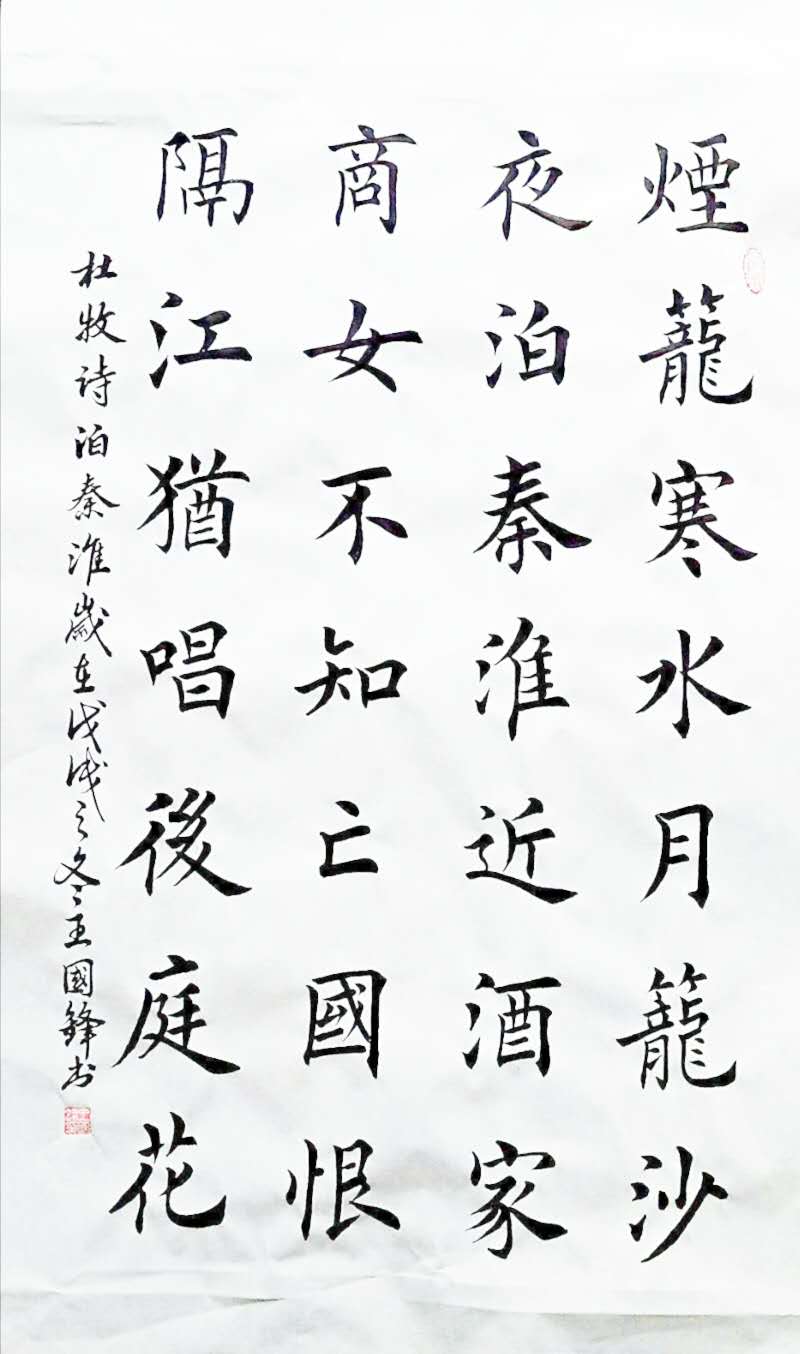 煙籠寒水月籠沙
夜泊秦淮近酒家
商女不知亡國恨
隔江猶唱後庭花
杜牧诗泊秦淮歲在戊戌之冬王國鋒书